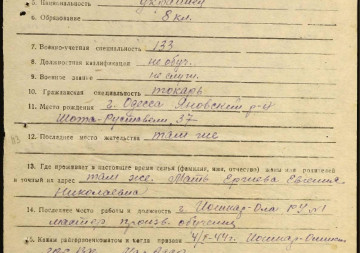 5. Национальность украинец
6. Образование 8 кл.
7. Военно-учетная специальность 133
8. Должностная квалификация не обуч.
9. Военное звание не служ.
10. Гражданская специальность токарь
11. Место рождения г. Одесса Яновский р-н
Шота-Руставели 37
12. Последнее место жительства там же
13. Где проживает в настоящее время семья (фамилия, имя, отчество) жены или родителей
и точный их адрес там же. Мать Евгения
Николаевна
14. Последнее место работы и должность г. Йошкар-Ола РУ №1
мастер произв. обучения
15. Каким райвоенкоматом и когда призван Йошкар-Олинск